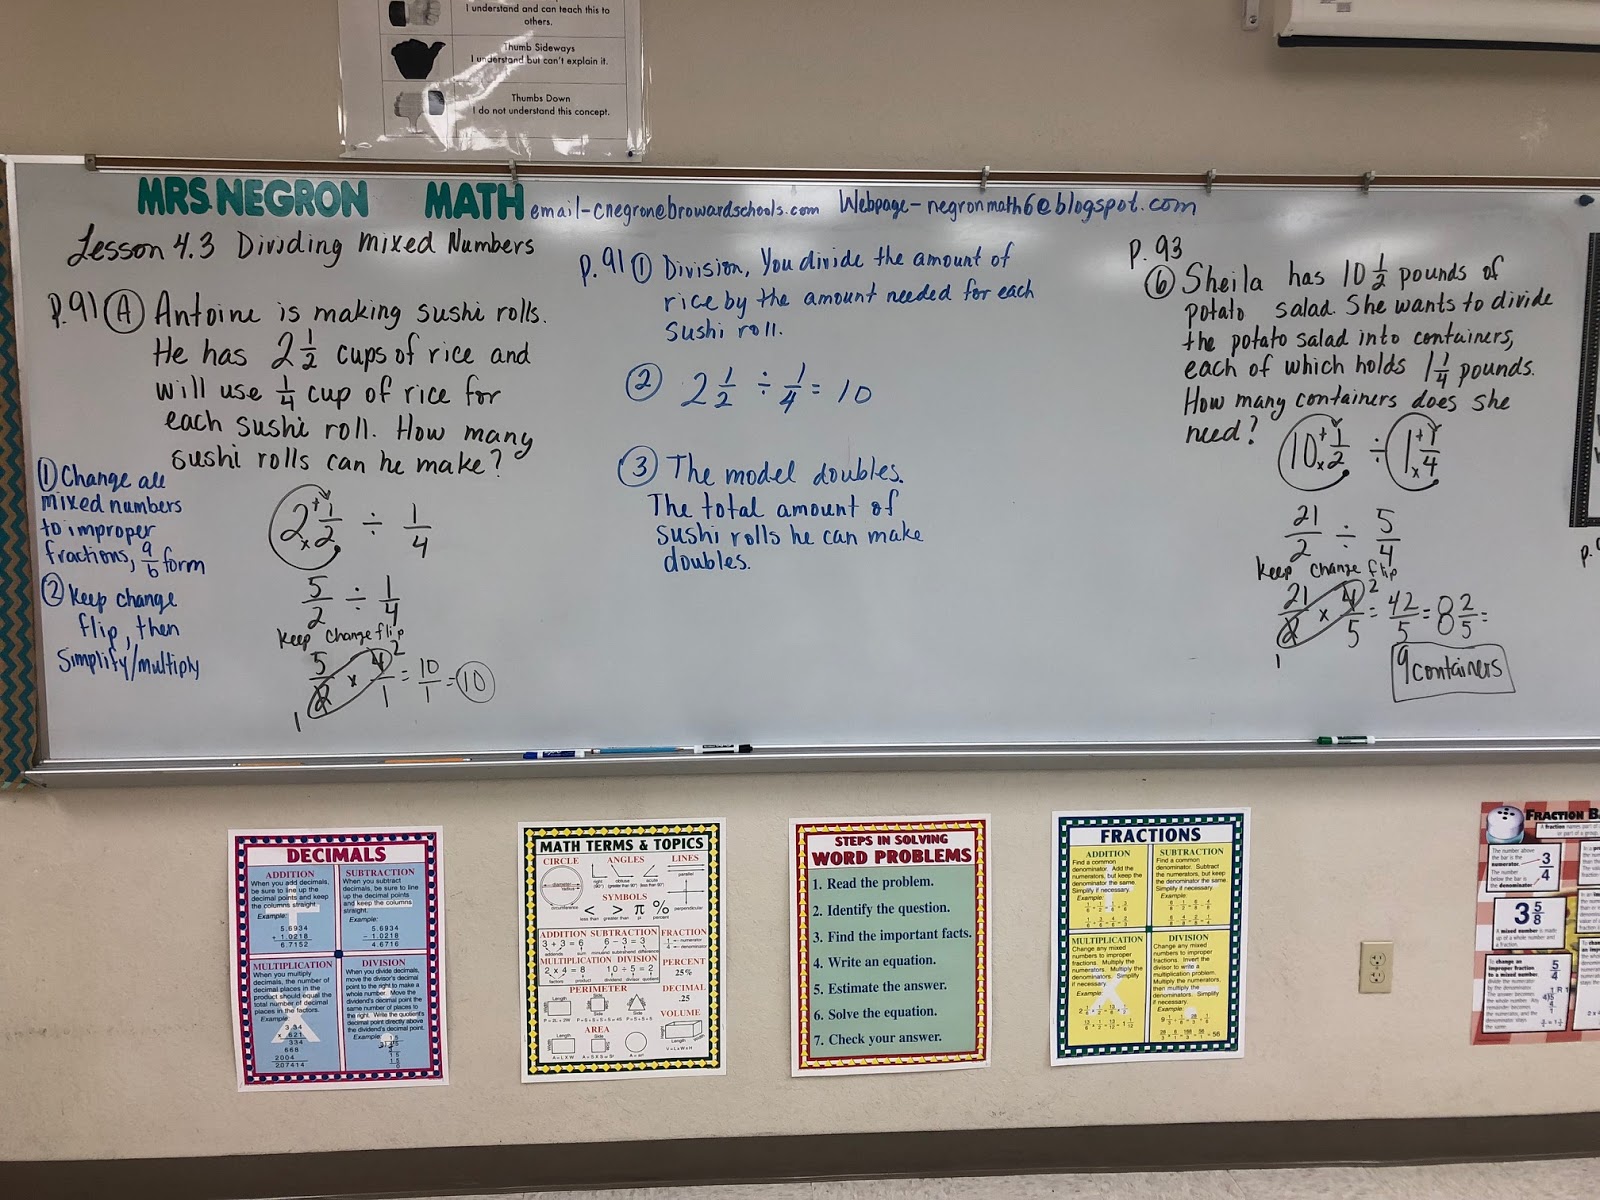 I understand and can teach this to
others.
Thumb Sideways
I understand but can't explain it.
Thumbs Down
I do not understand this concept.
MRS. NEGRON MATH email-cnegron@browardschools.com Webpage-negronmath6@blogspot.com
Lesson 4.3 Dividing Mixed Numbers
P.91 (A) Antoine is making sushi rolls.
He has 2 1/2 cups of rice and
will use 1/4 cup of rice for
each sushi roll. How many
sushi rolls can he make?
① Change all
mixed numbers
to improper
fractions, a/b form
② Keep change
flip, then
simplify/multiply
2 + 1/2 ÷ 1/4
x
5/2 ÷ 1/4
keep change flip
5/2 x 4/1 = 10/1 = 10
2
1
P. 91 ① Division, You divide the amount of
rice by the amount needed for each
sushi roll.
② 2 1/2 ÷ 1/4 = 10
③ The model doubles.
The total amount of
sushi rolls he can make
doubles.
P. 93
⑥ Sheila has 10 1/2 pounds of
potato salad. She wants to divide
the potato salad into containers,
each of which holds 1 1/4 pounds.
How many containers does she
need?
10 + 1/2 ÷ 1 + 1/4
x x
21/2 ÷ 5/4
keep change flip
21/2 x 4/5 = 42/5 = 8 2/5 =
2
1
9 containers
P.
DECIMALS
ADDITION
When you add decimals,
be sure to line up the
decimal points and keep
the columns straight.
Example:
5.6934
+ 1.0218
6.7152
SUBTRACTION
When you subtract
decimals, be sure to line
up the decimal points
and keep the columns
straight.
Example:
5.6934
- 1.0218
4.6716
MULTIPLICATION
When you multiply
decimals, the number of
decimal places in the
product should equal the
total number of decimal
places in the factors.
Example:
3.34
x .621
334
668
2004
2.07414
DIVISION
When you divide decimals,
move the divisor's decimal
point to the right to make a
whole number. Move the
dividend's decimal point the
same number of places to
the right. Write the quotient's
decimal point directly above
the dividend's decimal point.
Example:
MATH TERMS & TOPICS
CIRCLE ANGLES LINES
diameter
radius
circumference
right
(90°)
obtuse
(greater than 90°)
acute
(less than 90°)
parallel
perpendicular
SYMBOLS
< > π %
less than greater than pi percent
ADDITION SUBTRACTION FRACTION
3 + 3 = 6 6 - 3 = 3
addends sum minuend subtrahend difference
numerator
denominator
MULTIPLICATION DIVISION PERCENT
2 x 4 = 8 10 ÷ 5 = 2 25%
factors product dividend divisor quotient
PERIMETER DECIMAL
.25
Length Side Side
AREA VOLUME
Length Side
STEPS IN SOLVING
WORD PROBLEMS
1. Read the problem.
2. Identify the question.
3. Find the important facts.
4. Write an equation.
5. Estimate the answer.
6. Solve the equation.
7. Check your answer.
FRACTIONS
ADDITION
Find a common
denominator. Add the
numerators, but keep the
denominator the same.
Simplify if necessary.
Example:
SUBTRACTION
Find a common
denominator. Subtract
the numerators, but keep
the denominator the same.
Simplify if necessary.
Example:
MULTIPLICATION
Change any mixed
numbers to improper
fractions. Multiply the
numerators. Multiply the
denominators. Simplify
if necessary.
Example:
DIVISION
Change any mixed
numbers to improper
fractions. Invert the
divisor to write a
multiplication problem.
Multiply the numerators,
then multiply the
denominators. Simplify
if necessary.
Example:
FRACTION
A fraction names part of a
or part of a group.
The number above
the bar is the
numerator.
The number
below the bar
is the denominator.
3/4
3 5/8
A mixed number is made
up of a whole number and
a fraction.
To change an
improper fraction
to a mixed number,
divide the numerator
by the denominator.
5/4